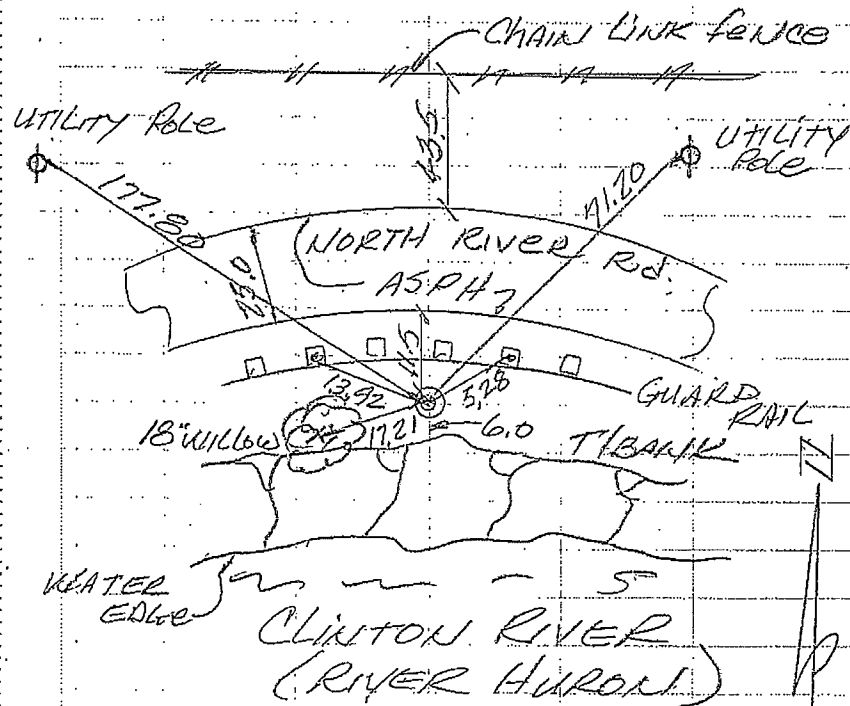 CHAIN LINK FENCE
UTILITY POLE
UTILITY
POLE
43.5
177.80
71.20
NORTH RIVER Rd.
23.0
ASPH
11.5
13.92
5.28
GUARD
RAIL
18" WILLOW
17.21
6.0
T/BANK
N
WATER
EDGE
CLINTON RIVER
(RIVER HURON)